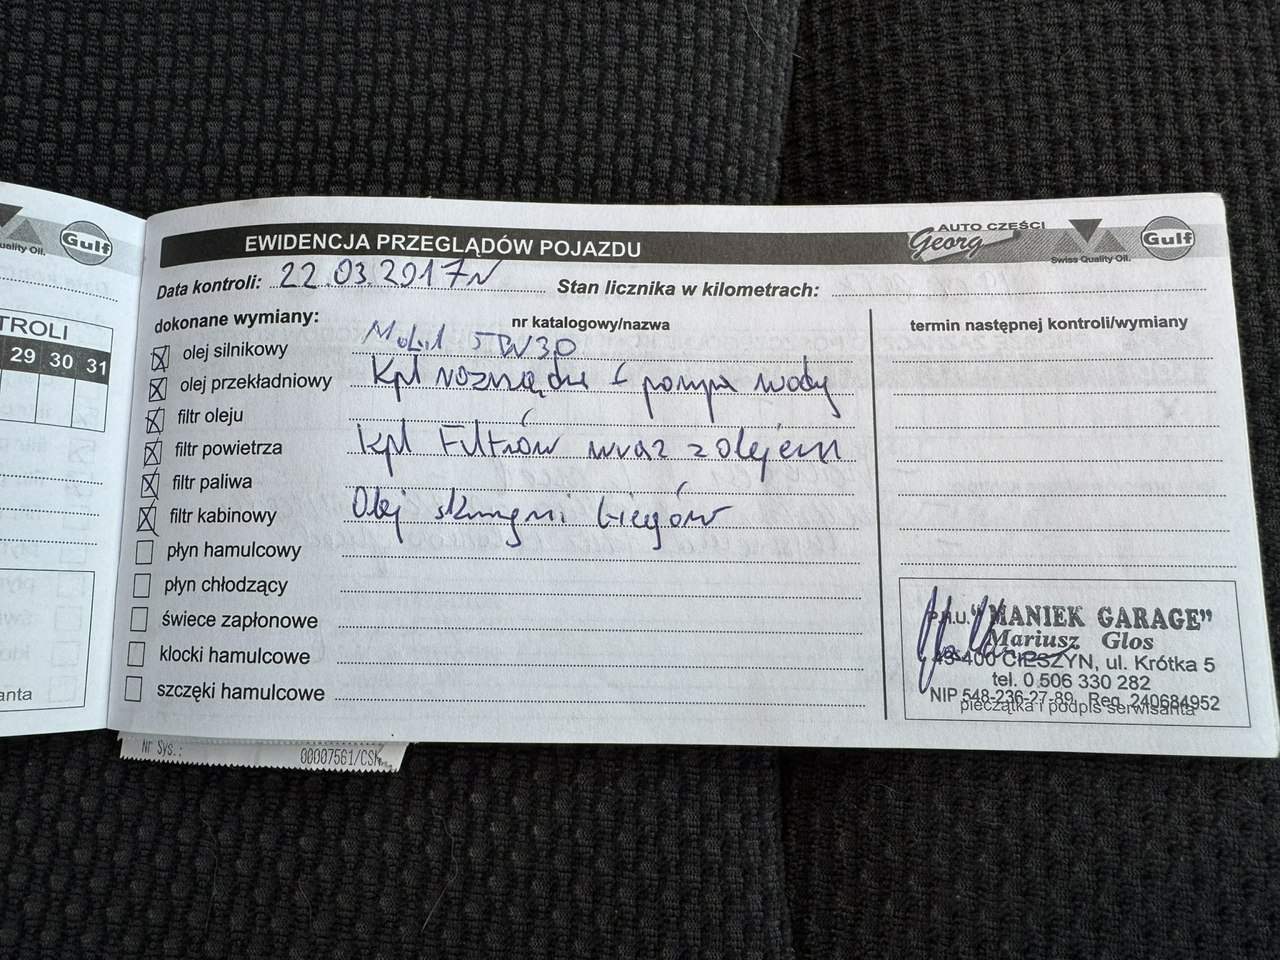 uality Oil.
Gulf
TROLI
29 30 31
anta
EWIDENCJA PRZEGLĄDÓW POJAZDU
AUTO CZĘŚCI
Georg
Swiss Quality Oil.
Gulf
Data kontroli: 22.03.2017r
Stan licznika w kilometrach:
dokonane wymiany:
nr katalogowy/nazwa
termin następnej kontroli/wymiany
olej silnikowy Mobil 5W30
olej przekładniowy Kpl rozrządu + pompa wody
filtr oleju
filtr powietrza Kpl Filtrów wraz z olejem
filtr paliwa
filtr kabinowy Olej skrzyni biegów
płyn hamulcowy
płyn chłodzący
świece zapłonowe
klocki hamulcowe
szczęki hamulcowe
P.H.U. "MANIEK GARAGE"
Mariusz Glos
43-400 CIESZYN, ul. Krótka 5
tel. 0 506 330 282
NIP 548-236-27-89, Reg. 240684952
pieczątka i podpis serwisanta
Nr Sys.: 00007561/CSK